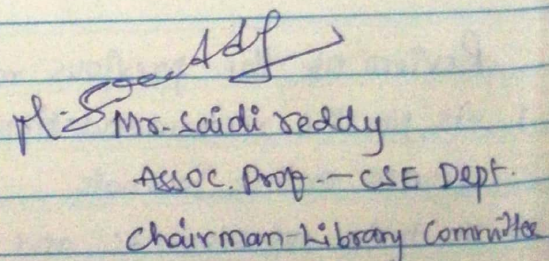 Mr. Saidi reddy
Assoc. Prof. - CSE Dept.
Chairman-Library Committee